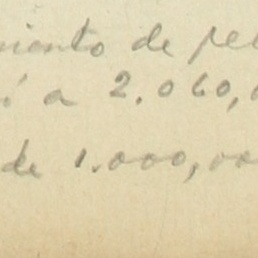 miento de pel
í a 2.060,
de 1.000,00